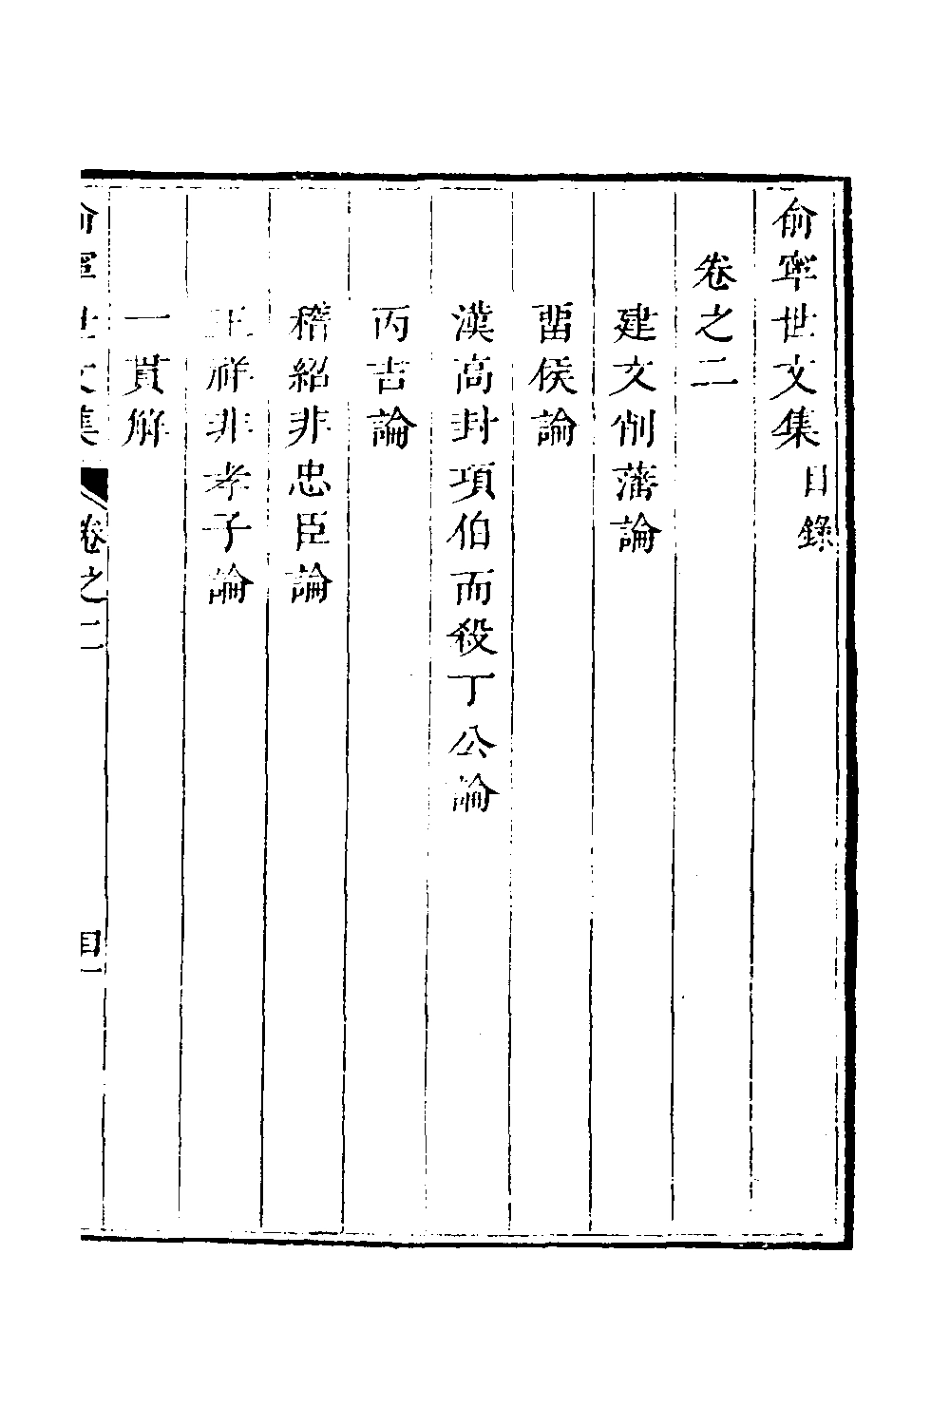 俞寧世文集目錄
卷之二
建文削藩論
畱侯論
漢高封項伯而殺丁公論
丙吉論
稽紹非忠臣論
王祥非孝子論
一貫解
俞寧世文集 卷之二